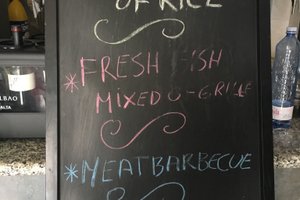 OF RICE
*FRESH FISH
MIXED OF GRILLE
*MEATBARBECUE
BILBAO